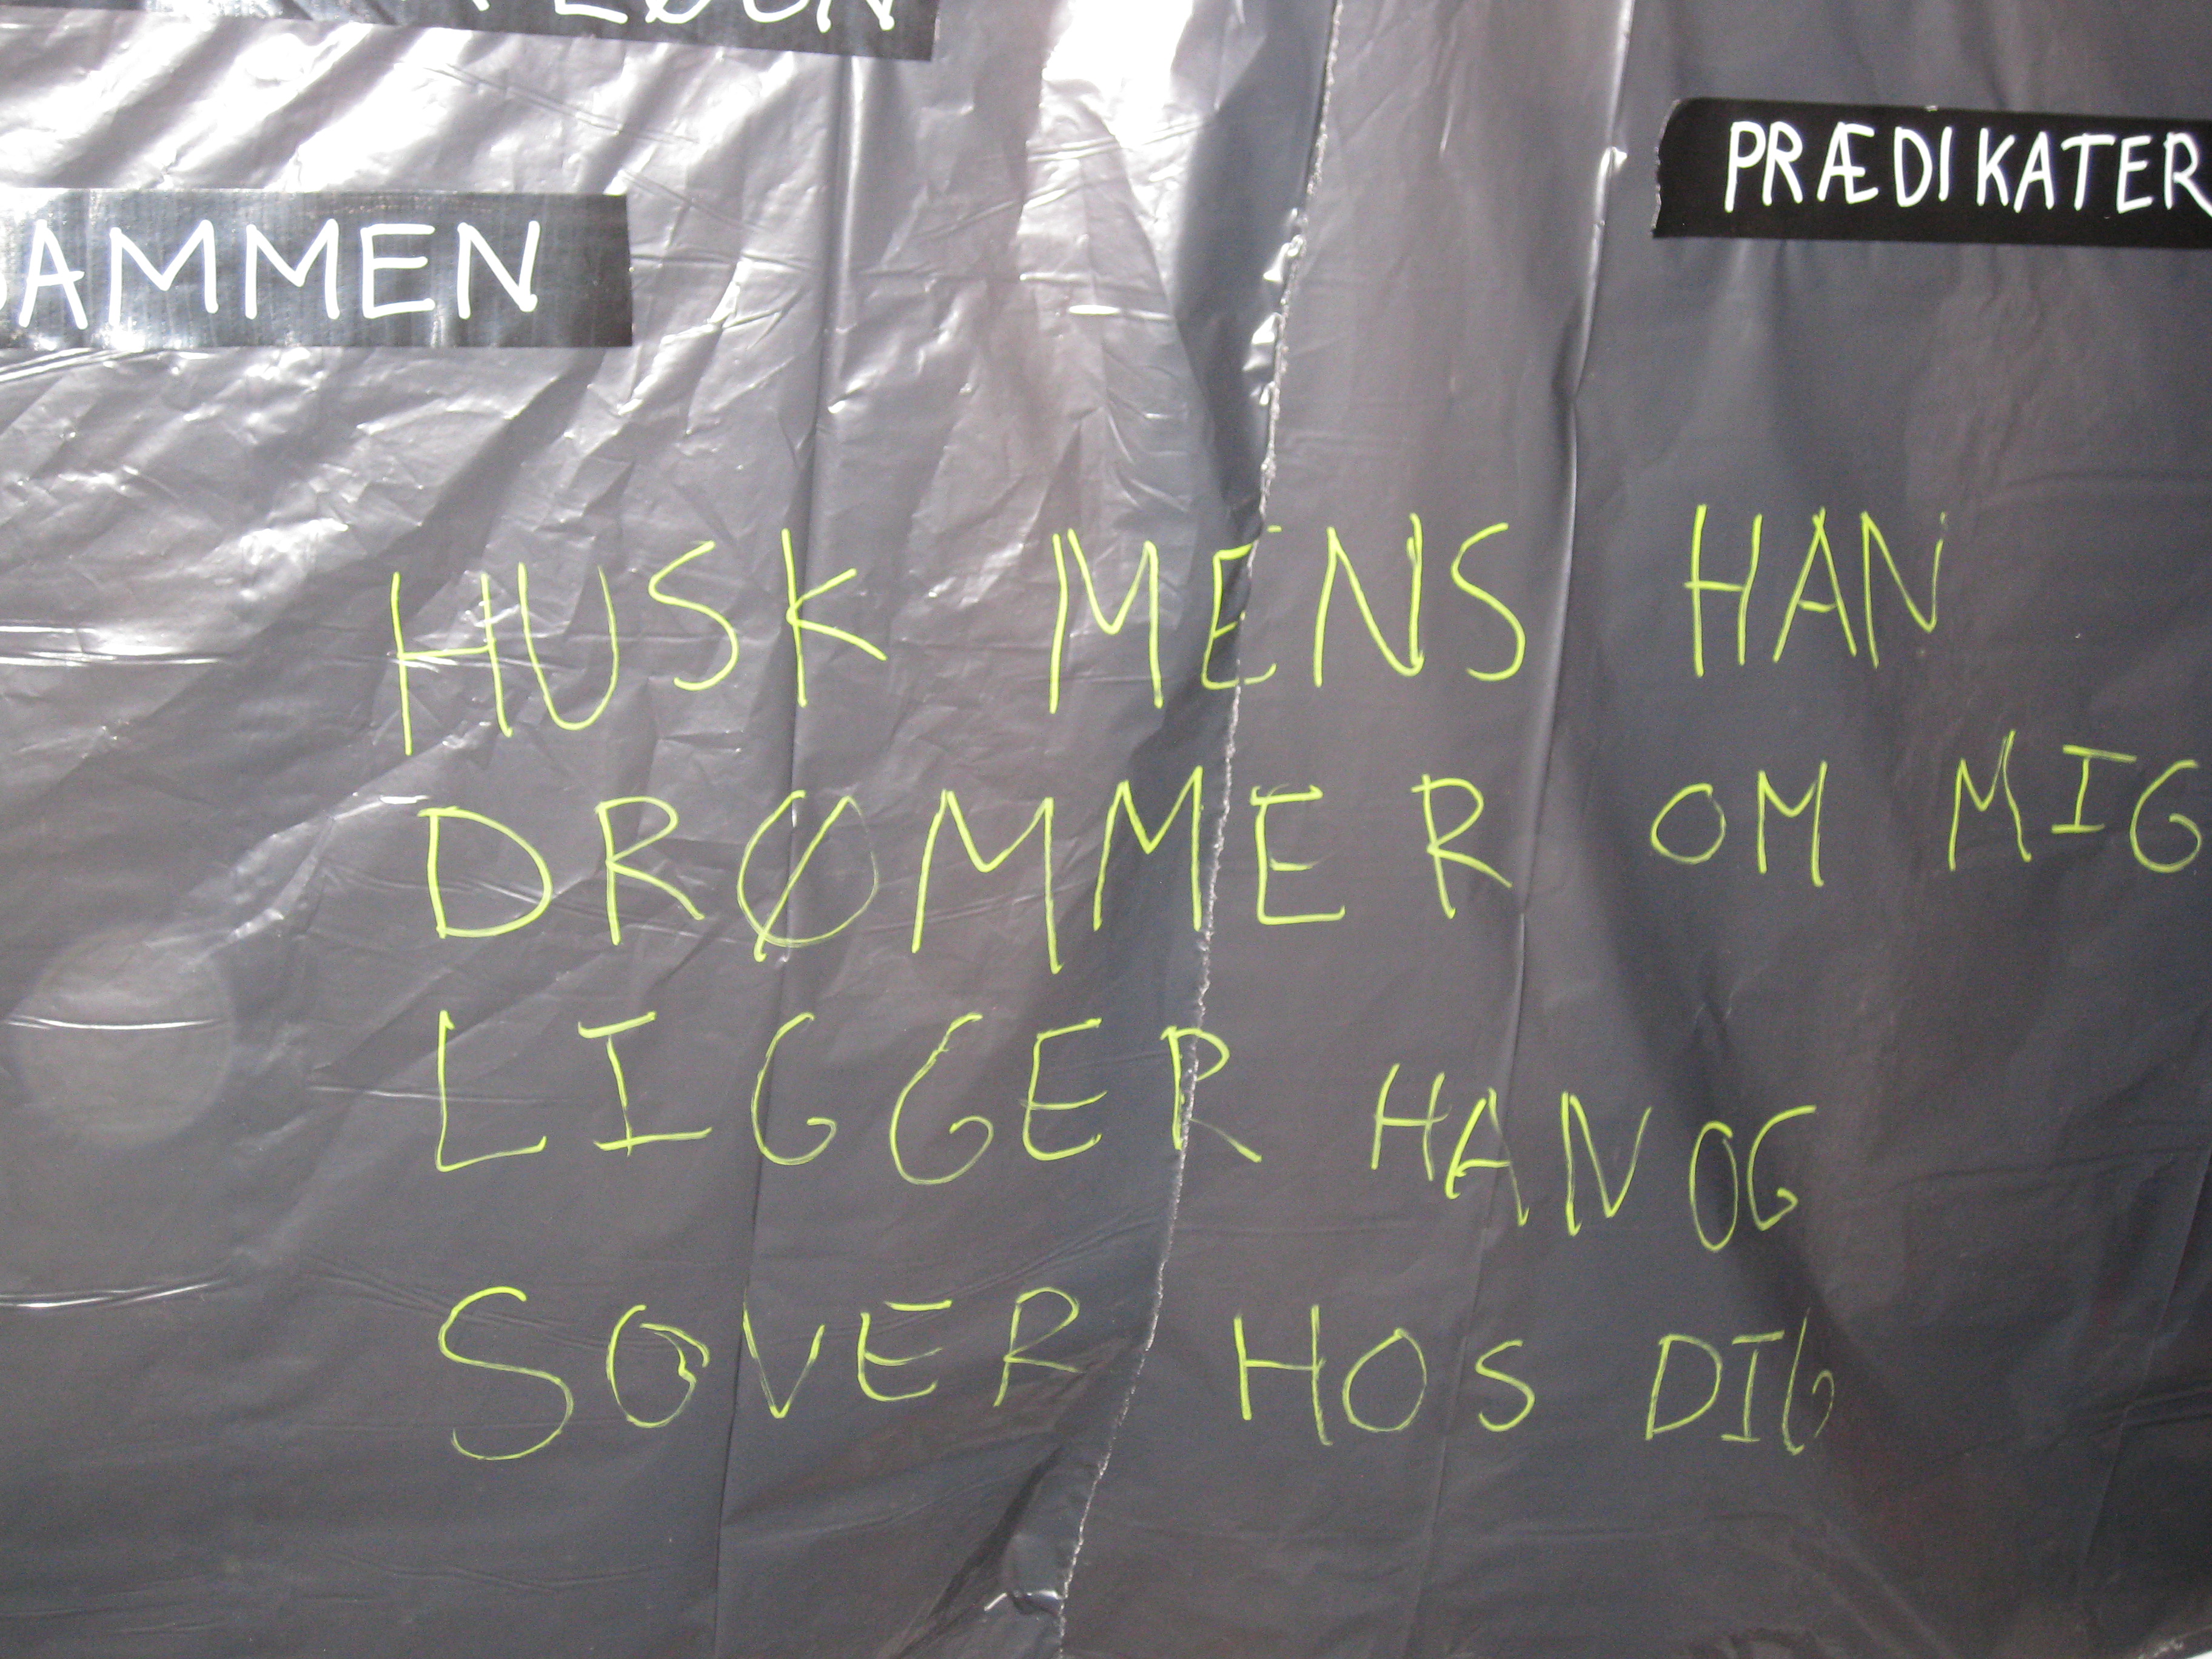 AMMEN
PRÆDIKATER
HUSK MENS HAN
DRØMMER OM MIG
LIGGER HAN OG
SOVER HOS DIG